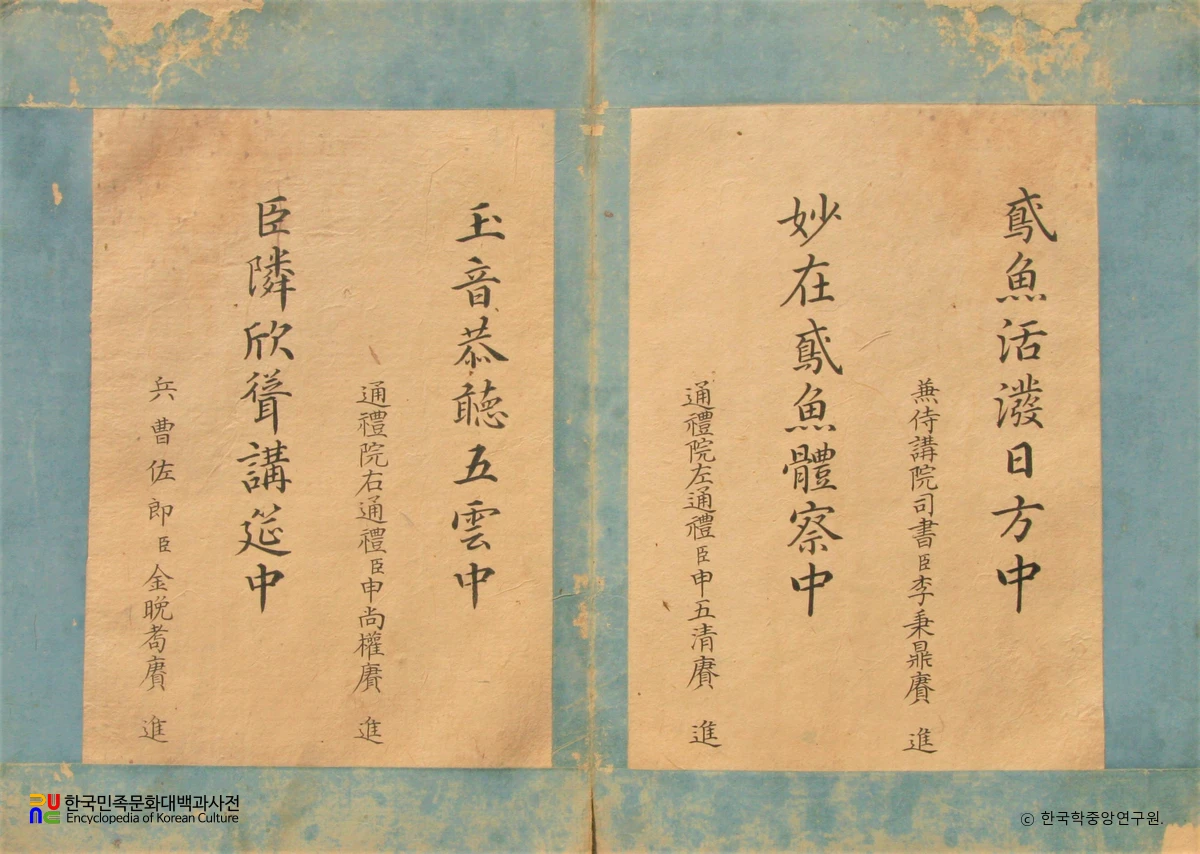 鳶魚活潑日方中
兼侍講院司書臣李秉鼎賡 進
妙在鳶魚體察中
通禮院左通禮臣申五清賡 進
玉音恭聽五雲中
通禮院右通禮臣申尚權賡 進
臣隣欣聳講筵中
兵曹佐郎臣金晩耈賡 進
한국민족문화대백과사전
Encyclopedia of Korean Culture
ⓒ 한국학중앙연구원.